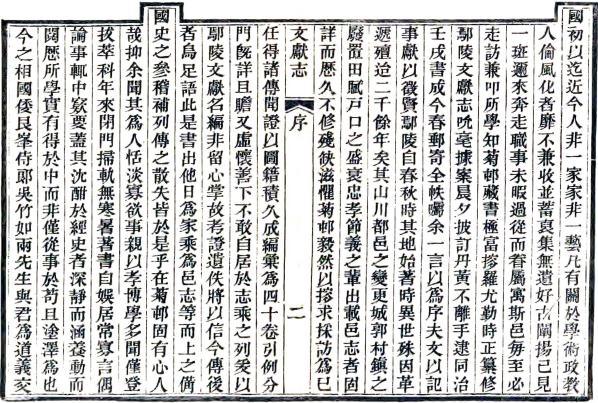 國初以迄近今人非一家家非一藝凡有關於學術政教
人倫風化者靡不兼收並蓄裒集無遺好古闡揚已見
一斑邇來奔走職事未暇過從而眷屬寓斯邑每至必
走訪兼叩所學知菊邨藏書極富搜羅尤勤時正纂修
鄢陵文獻志吮毫據案晨夕披訂丹黃不離手逮同治
壬戌書成今春郵寄全帙囑余一言以爲序夫文以記
事獻以徵賢鄢陵自春秋時其地始著時異世殊因革
遞殫迨二千餘年矣其山川都邑之變更城郭村鎮之
廢置田賦戸口之盛衰忠孝節義之輩出載邑志者固
詳而歷久不修殘缺滋懼菊邨毅然以搜求採訪爲己
文獻志 序 二
任得諸傳聞證以圖籍積久成編彙爲四十卷引例分
門旣詳且贍又虛懷善下不敢自居於志乘之列爰以
鄢陵文獻名編非留心掌故考證遺佚將以信今傳後
者烏足語此是書出他日爲家乘爲邑志等而上之備
國史之參稽補列傳之散失皆於是乎在菊邨固有心人
哉抑余聞其爲人恬淡寡欲事親以孝博學多聞僅登
拔萃科年來閉門掃軌無寒暑著書自娛居常寡言偶
論事輒中窾要蓋其沈酣於經史者深靜而涵養動而
閱歷所學實有得於中而非僅從事於苟且塗澤爲也
今之相國倭艮峯侍郞吳竹如兩先生與君爲道義交